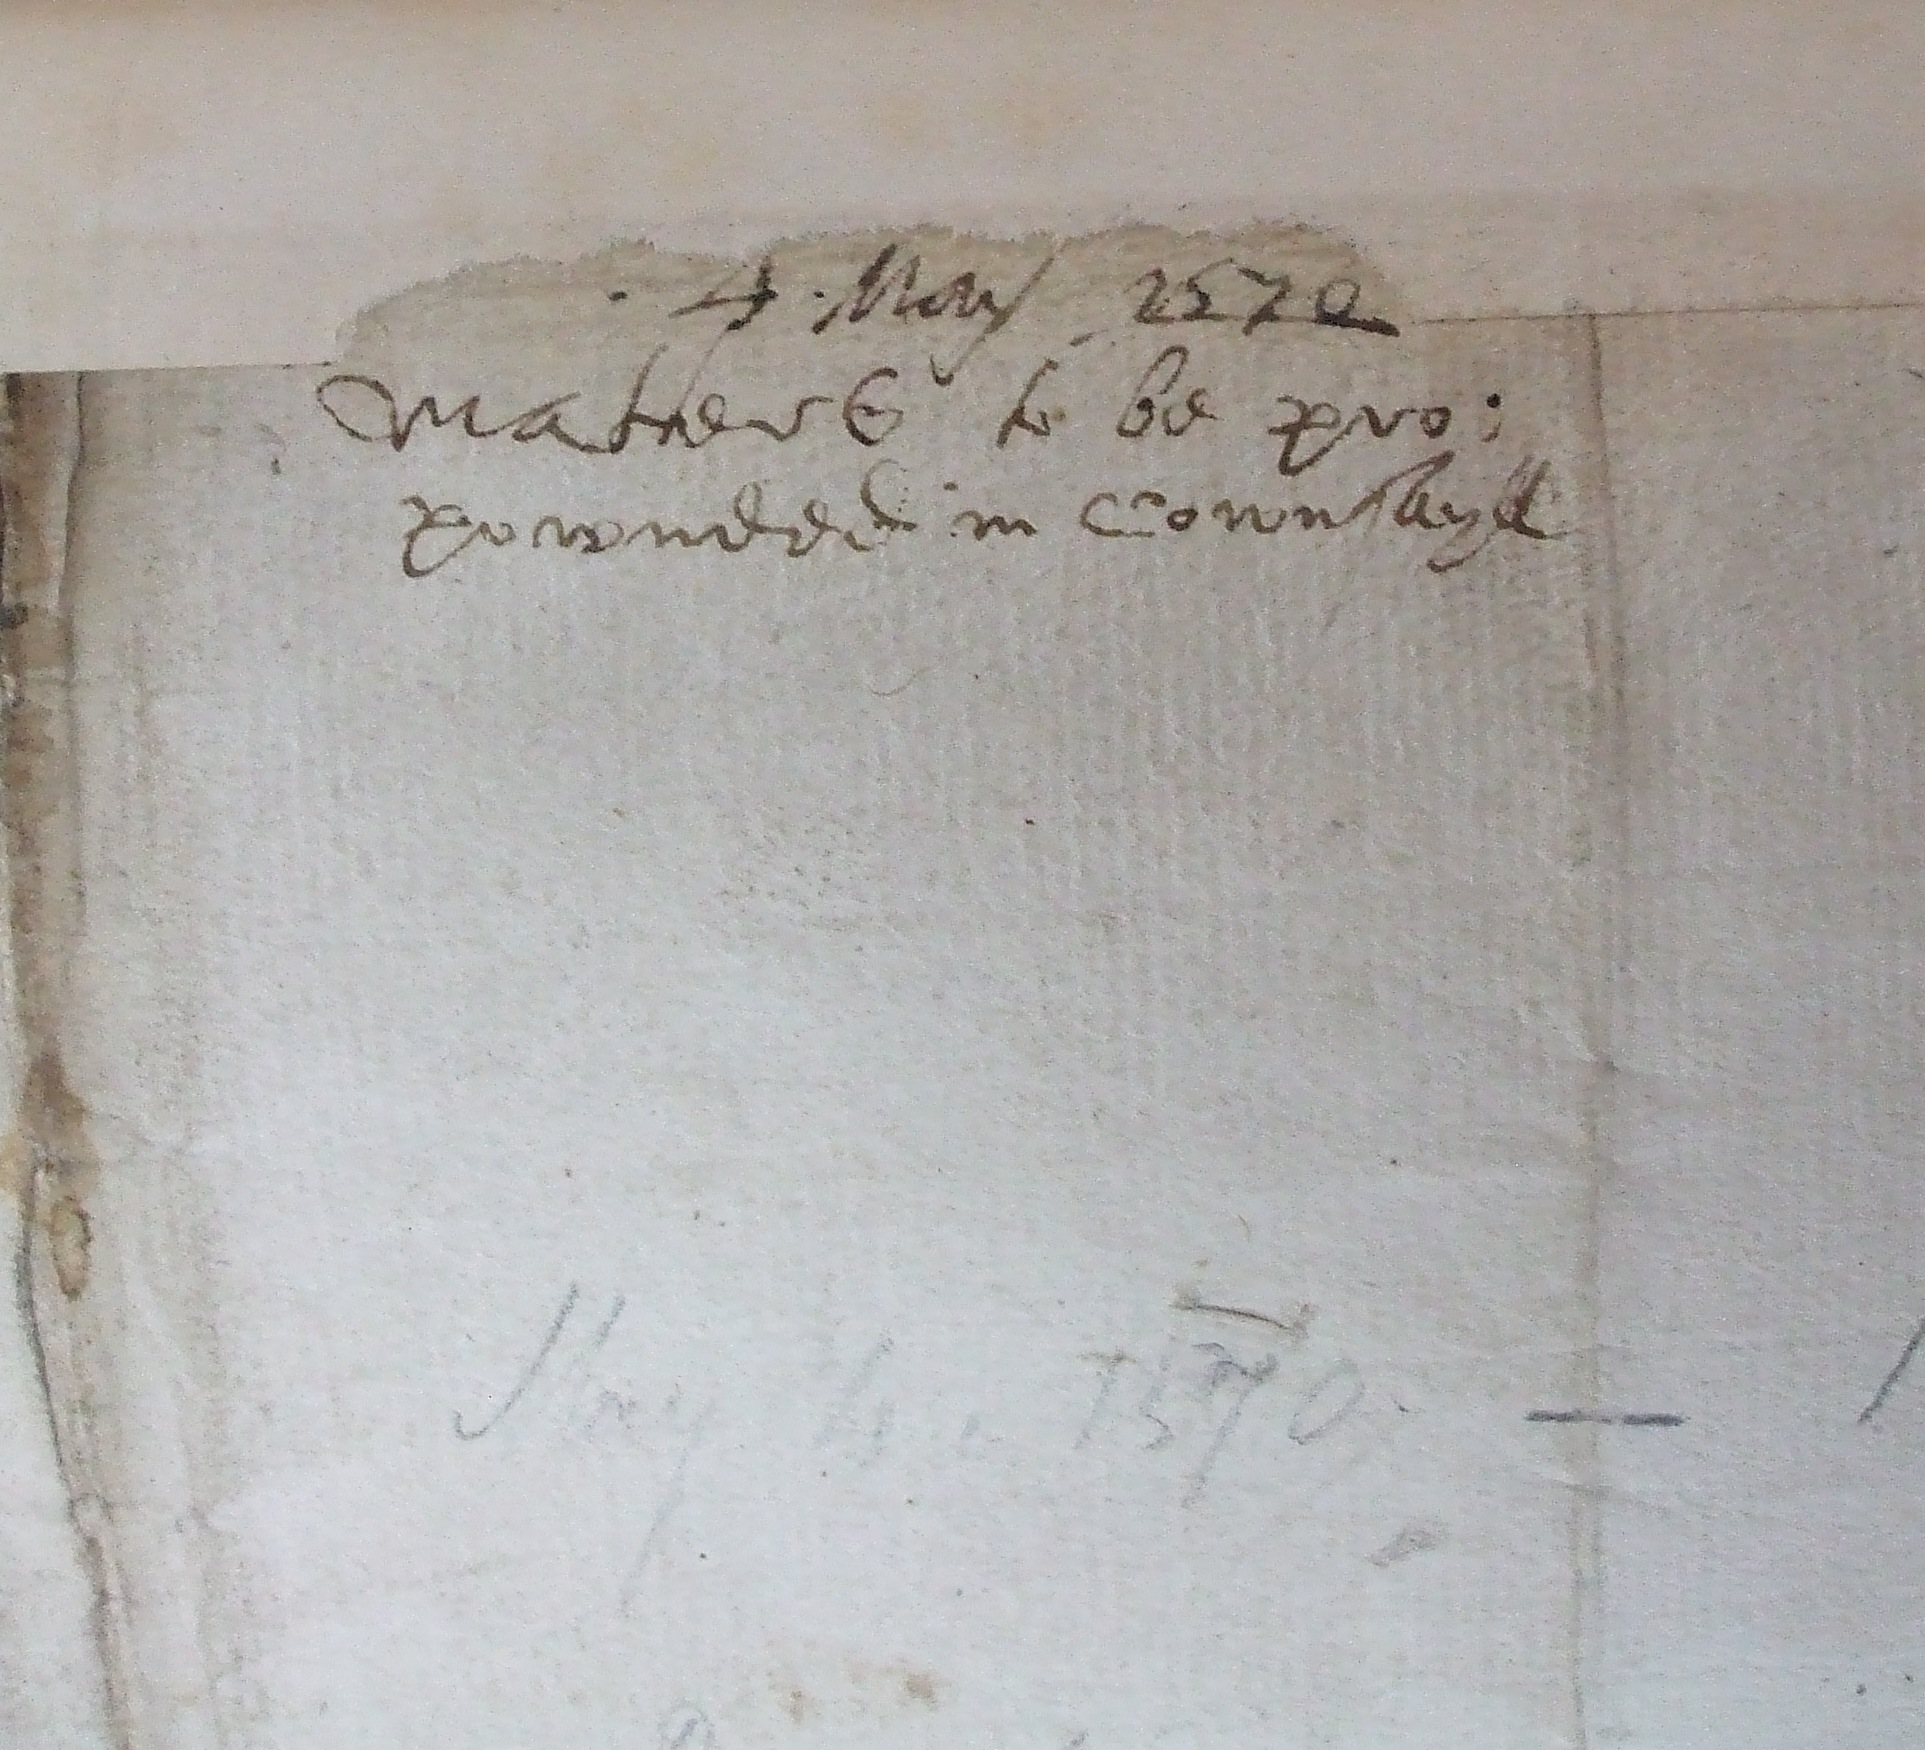 4 May 1570
Matters to be pro:
pownded in Counsayll
May 4. 1570. —